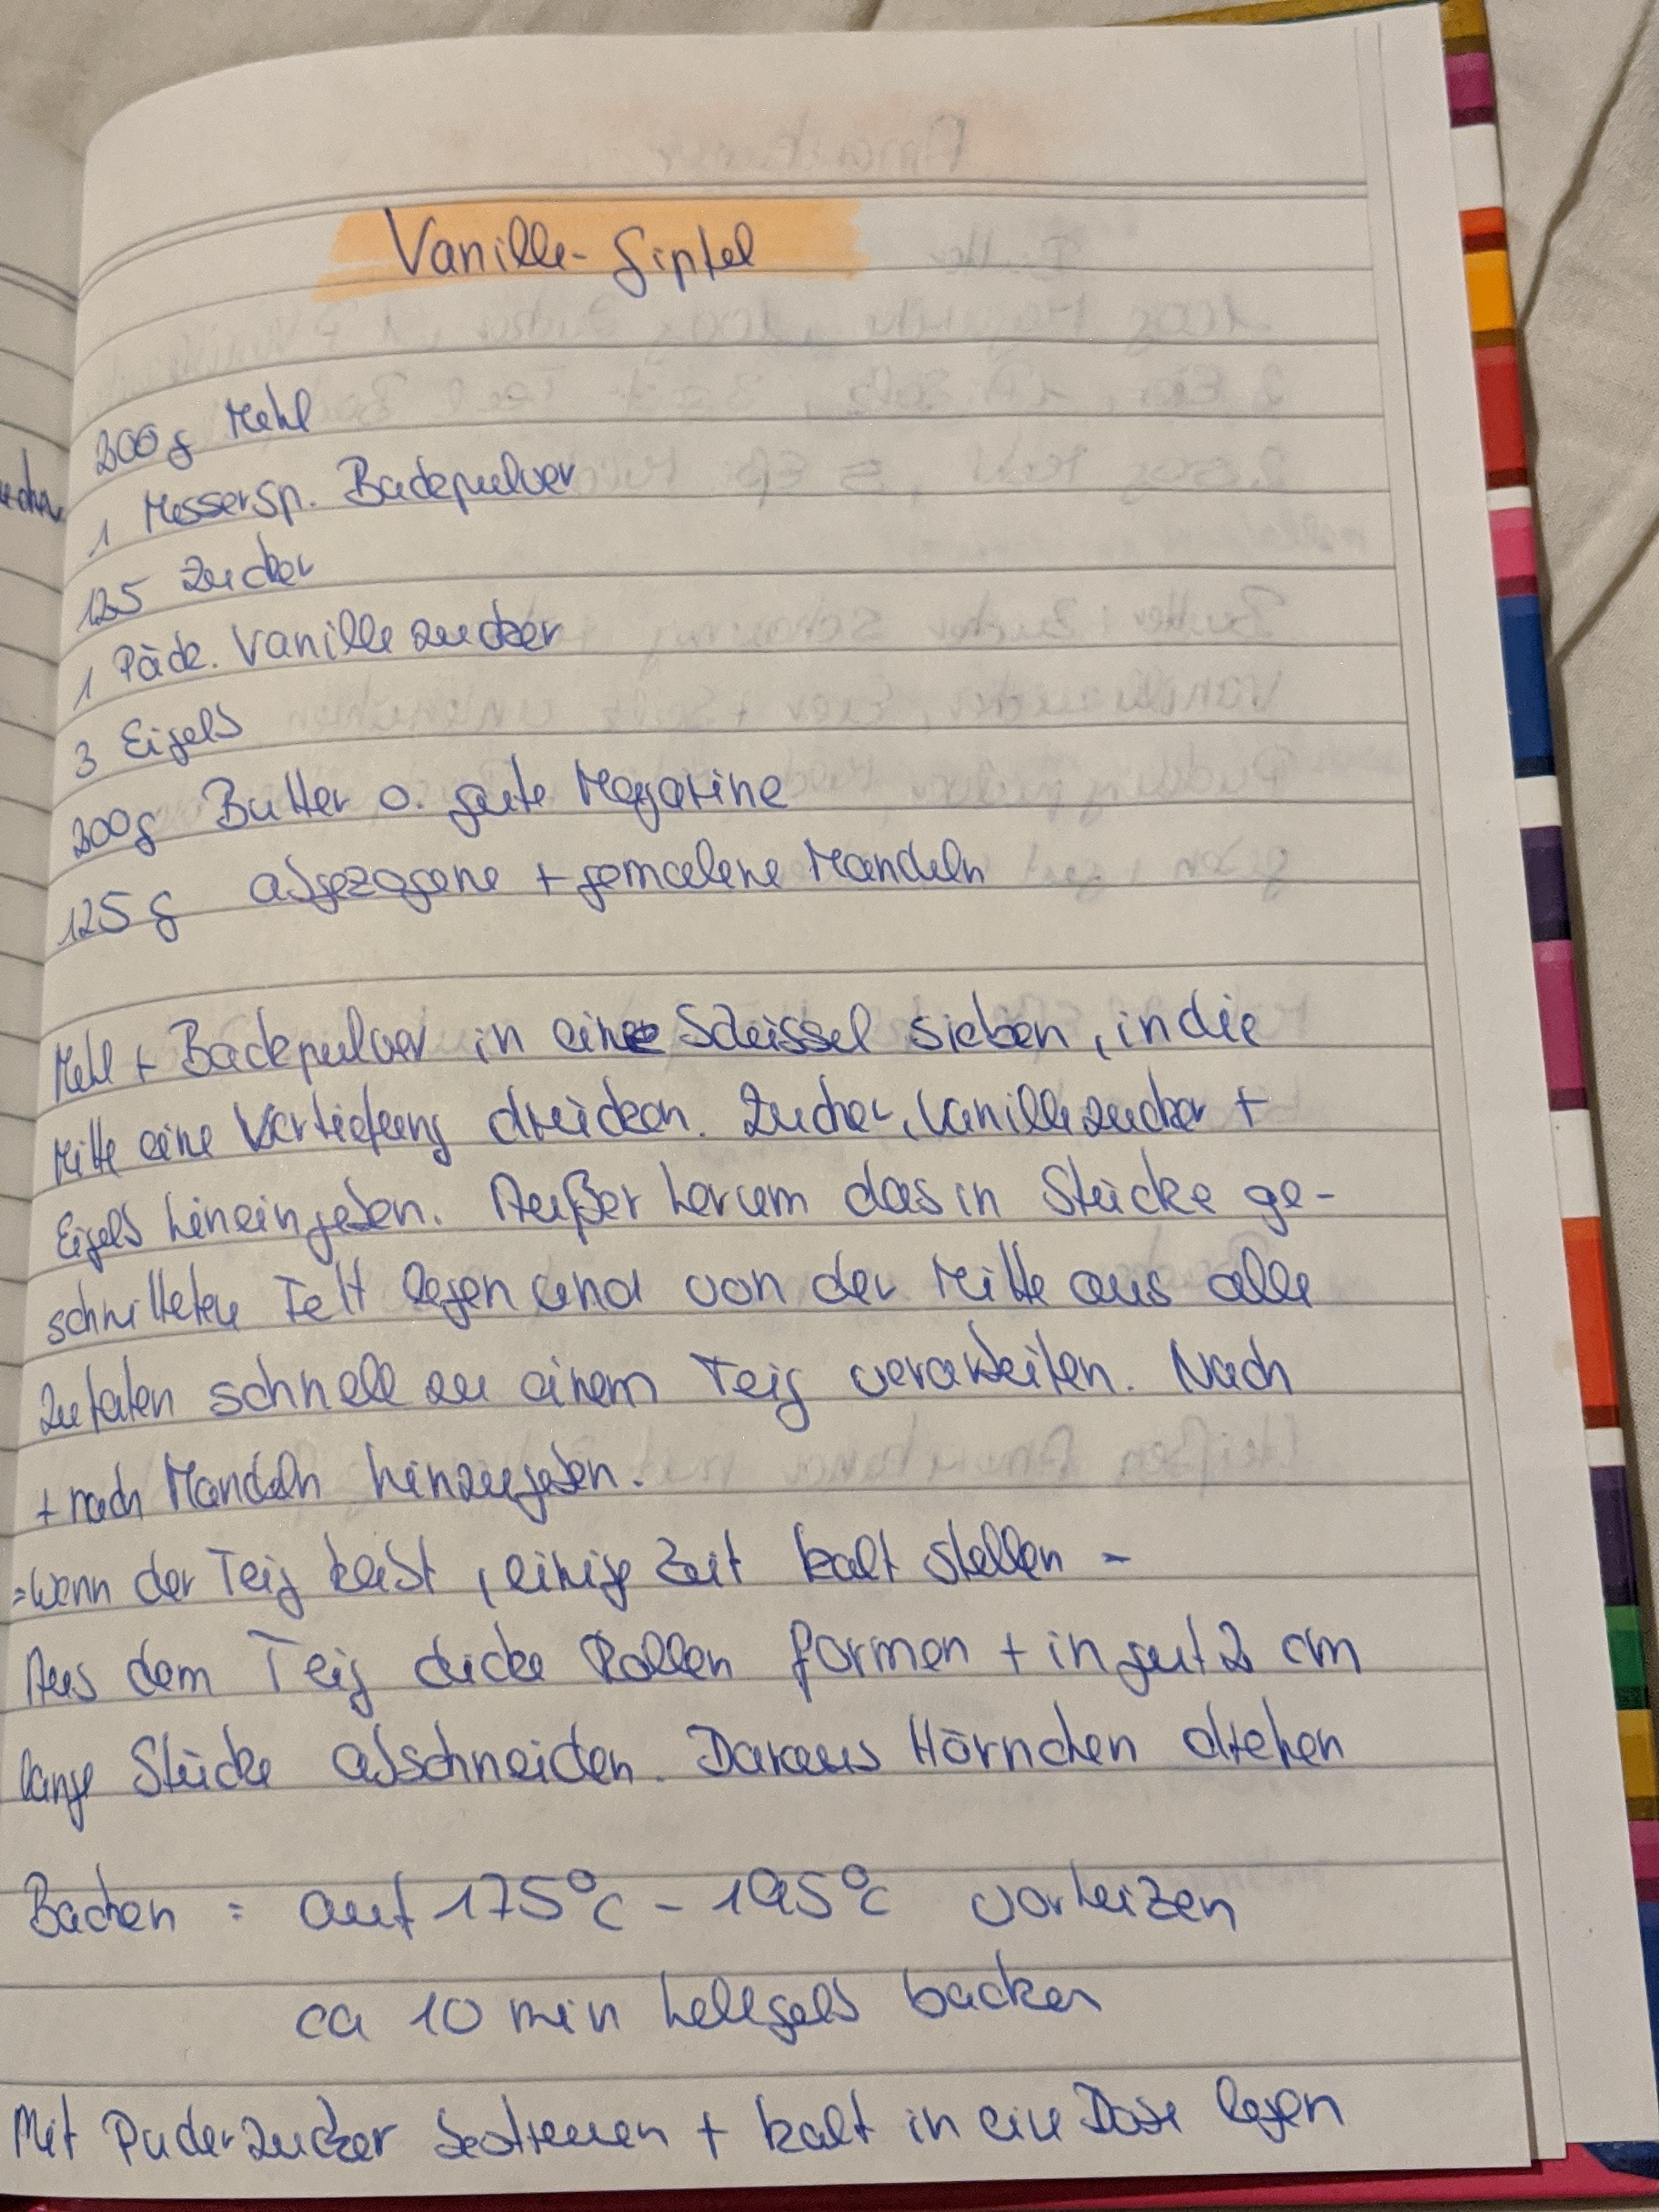 Vanille-Gipfel
200g Mehl
1 Messersp. Backpulver
125 Zucker
1 Päck. Vanillezucker
3 Eigelb
200g Butter o. gute Magarine
125g abgezogene + gemalene Mandeln
Mehl + Backpulver in eine Schüssel sieben, in die
Mitte eine Vertiefung drücken. Zucker, Vanillezucker +
Eigelb hineingeben. Außer herum das in Stücke ge-
schnittene Fett legen und von der Mitte aus alle
Zutaten schnell zu einem Teig verarbeiten. Nach
+ nach Mandeln hinzugeben.
- wenn der Teig klebt, einige Zeit kalt stellen -
Aus dem Teig dicke Rollen formen + in gut 2 cm
lange Stücke abschneiden. Daraus Hörnchen drehen
Backen = auf 175°C - 195°C vorheizen
ca 10 min hellgelb backen
Mit Puderzucker bestreuen + kalt in eine Dose legen